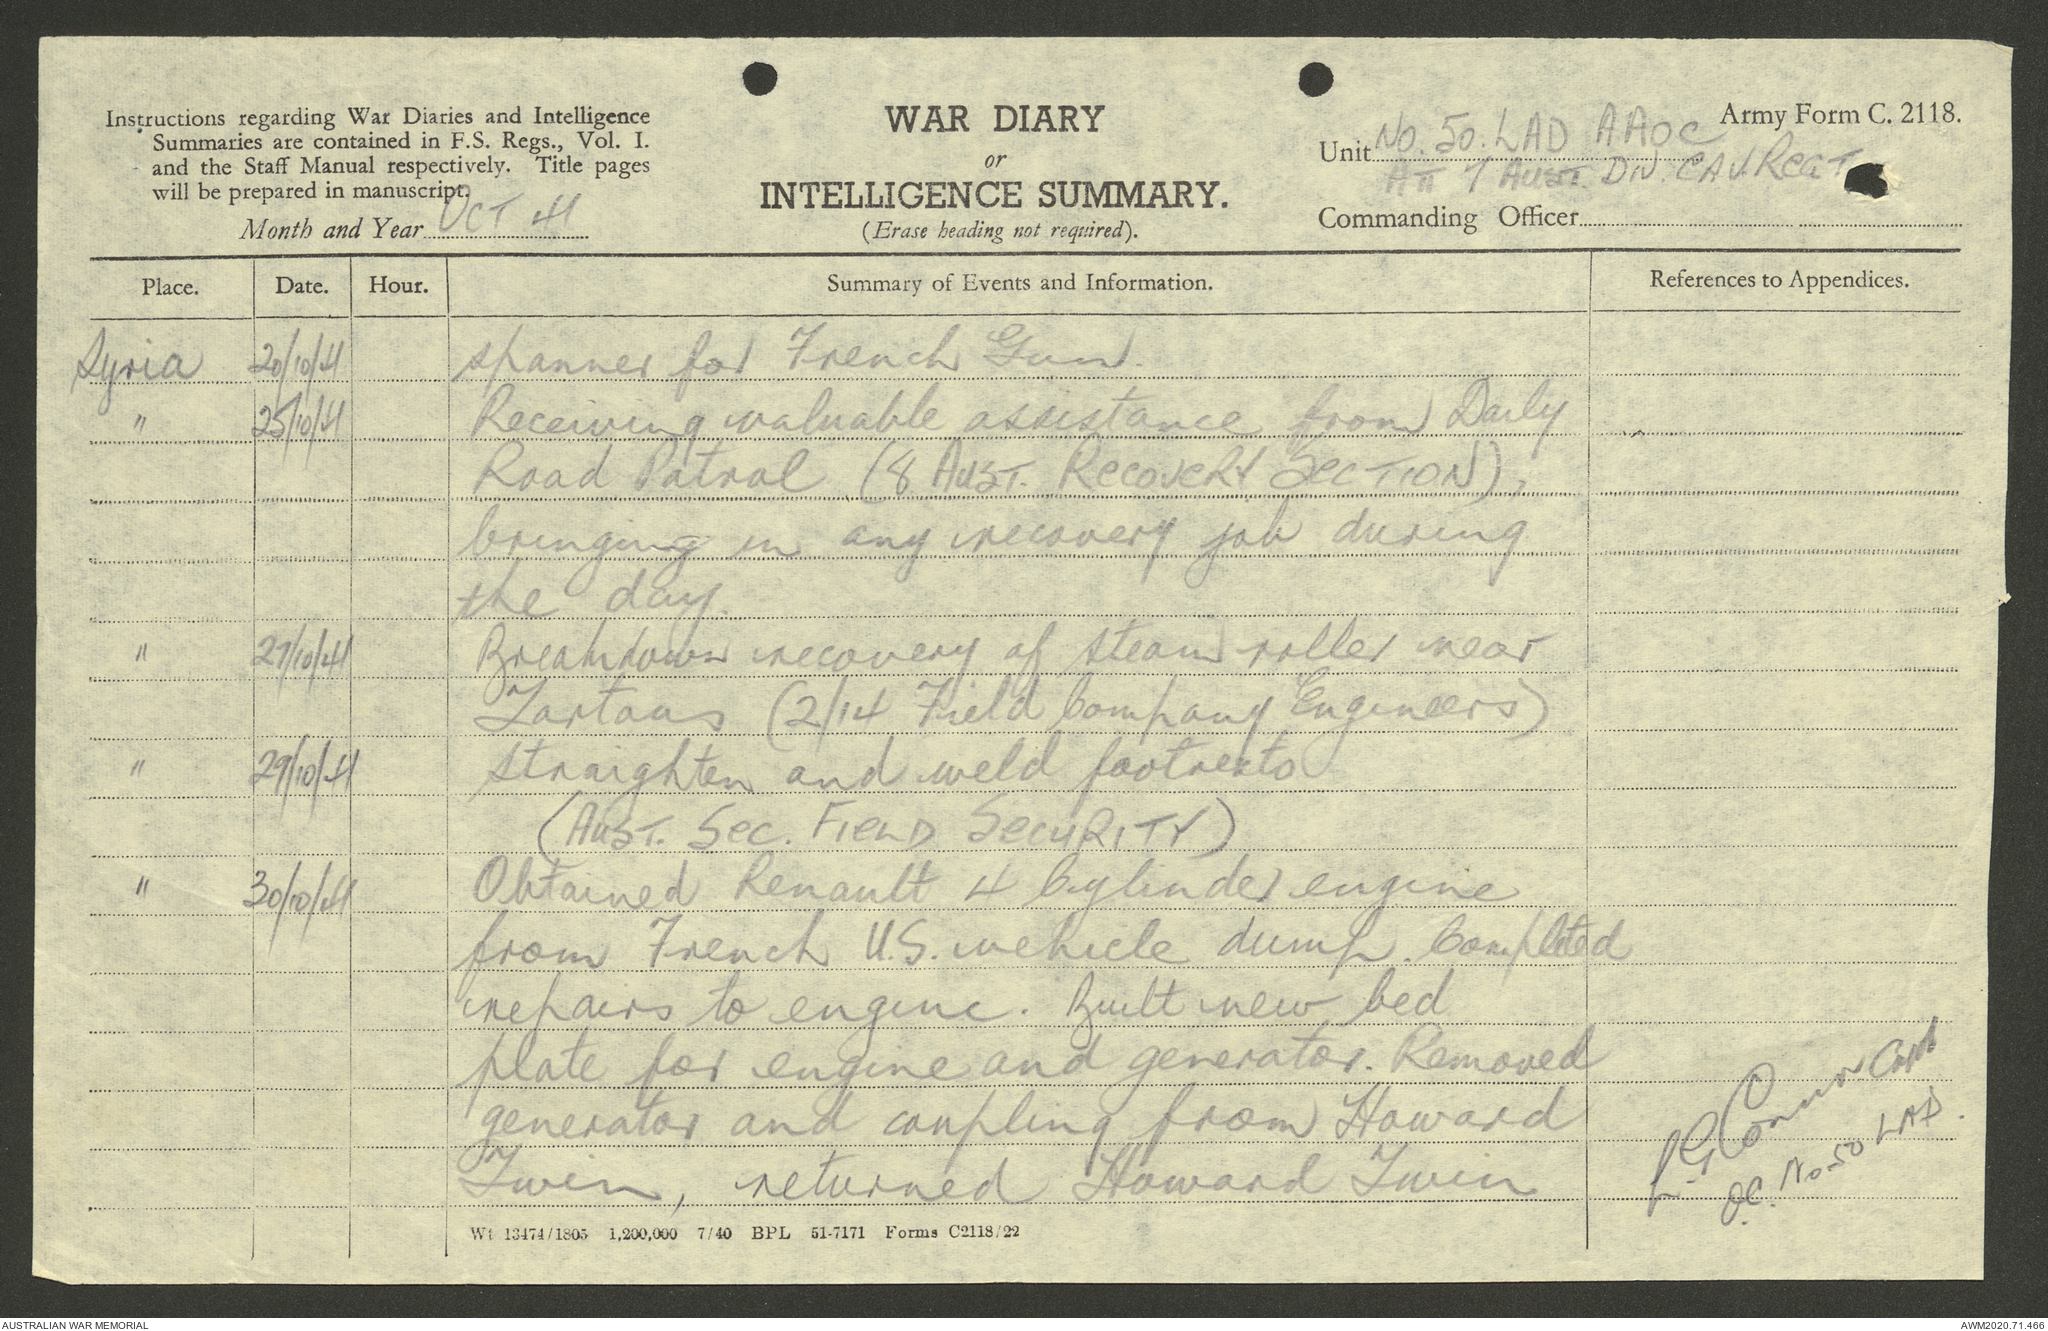 Instructions regarding War Diaries and Intelligence
Summaries are contained in F.S. Regs., Vol. I.
and the Staff Manual respectively. Title pages
will be prepared in manuscript.
Month and Year OCT 41
WAR DIARY
or
INTELLIGENCE SUMMARY.
(Erase heading not required).
Army Form C. 2118.
Unit No. 50. LAD AAOC
Att 7 Aust. Div. CAV. Regt
Commanding Officer
Place. Date. Hour. Summary of Events and Information. References to Appendices.
Syria 20/10/41 spanner for French Gun.
" 25/10/41 Receiving valuable assistance from Daily
Road Patrol (8 Aust. Recovery Section),
bringing in any recovery job during
the day.
" 27/10/41 Breakdown recovery of steam roller near
Tartous (2/14 Field Company Engineers)
" 29/10/41 Straighten and weld footrests
(Aust. Sec. Field Security)
" 30/10/41 Obtained Renault 4 Cylinder engine
from French U.S. vehicle dump. Completed
repairs to engine. Built new bed
plate for engine and generator. Removed
generator and coupling from Howard
Twin, returned Howard Twin
O'Connor Capt
O.C. No 50 LAD.
Wt 13474/1805 1,200,000 7/40 BPL 51-7171 Forms C2118/22
AUSTRALIAN WAR MEMORIAL
AWM2020.71.466